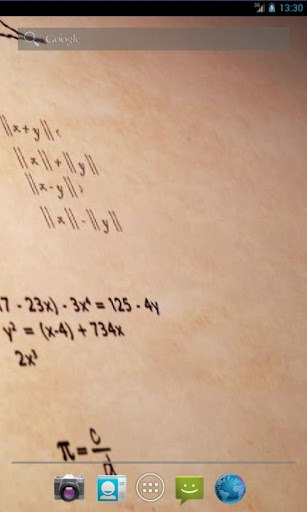 3G 13:30
Google
||x+y|| ≤
||x||+||y||
||x-y|| ≥
||x||-||y||
17 - 23x) - 3x⁴ = 125 - 4y
y² = (x-4) + 734x
2x³
π = c/d